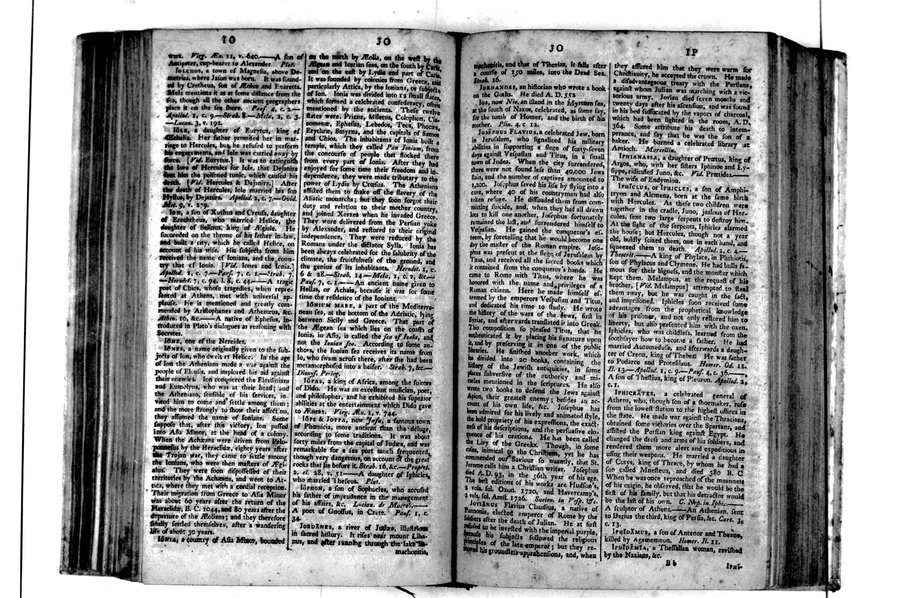 IO
JO
wort. Virg. Æn. 11, v. 640.——A son of
Antipater, cup-bearer to Alexander. Plut.
IOLCHOS, a town of Magnesia, above De-
metrias, where Jason was born. It was found-
ed by Cretheus, son of Æolus and Enaretta.
Mela mentions it as at some distance from the
sea, though all the other ancient geographers
place it on the sea shore. Paus. 4, c. 2.—
Apollod. 1, c. 9.—Strab. 8.—Mela, 2, c. 3.
—Lucan. 3, v. 192.
IOLE, a daughter of Eurytus, king of
Œchalia. Her father promised her in mar-
riage to Hercules, but he refused to perform
his engagements, and Iole was carried away by
force. [Vid. Eurytus.] It was to extinguish
the love of Hercules for Iole, that Dejanira
sent him the poisoned tunic, which caused his
death. [Vid. Hercules & Dejanira.] After
the death of Hercules, Iole married his son
Hyllus, by Dejanira. Apollod. 2, c. 7.—Ovid.
Met. 9, v. 279.
ION, a son of Xuthus and Creusa, daughter
of Erechtheus, who married Helice, the
daughter of Selinus, king of Ægiale. He
succeeded on the throne of his father-in-law,
and built a city, which he called Helice, on
account of his wife. His subjects from him
received the name of Ionians, and the coun-
try that of Ionia. [Vid. Iones and Ionia.]
Apollod. 1, c. 7.—Paus. 7, c. 1.—Strab. 7.
—Herodot. 7, c. 94. l. 8, c. 44.——A tragic
poet of Chios, whose tragedies, when repre-
sented at Athens, met with universal ap-
plause. He is mentioned and greatly com-
mended by Aristophanes and Athenæus, &c.
Athen. 10, &c.——A native of Ephesus, in-
troduced in Plato's dialogues as reasoning with
Socrates.
IONE, one of the Nereides.
IONES, a name originally given to the sub-
jects of Ion, who dwelt at Helice. In the age
of Ion the Athenians made a war against the
people of Eleusis, and implored his aid against
their enemies. Ion conquered the Eleusinians
and Eumolpus, who was at their head; and
the Athenians, sensible of his services, in-
vited him to come and settle among them;
and the more strongly to show their affection,
they assumed the name of Ionians. Some
suppose that, after this victory, Ion passed
into Asia Minor, at the head of a colony.
When the Achæans were driven from Pelo-
ponnesus by the Heraclidæ, eighty years after
the Trojan war, they came to settle among
the Ionians, who were then masters of Ægi-
alus. They were soon dispossessed of their
territories by the Achæans, and went to At-
tica, where they met with a cordial reception.
Their migration from Greece to Asia Minor
was about 60 years after the return of the
Heraclidæ, B. C. 1044, and 80 years after the
departure of the Æolians; and they therefore
finally settled themselves, after a wandering
life of about 30 years.
IONIA, a country of Asia Minor, bounded
on the north by Æolia, on the west by the
Ægean and Icarian seas, on the south by Caria,
and on the east by Lydia and part of Caria.
It was founded by colonies from Greece, and
particularly Attica, by the Ionians, or subjects
of Ion. Ionia was divided into 12 small states,
which formed a celebrated confederacy, often
mentioned by the ancients. These twelve
states were, Priene, Miletus, Colophon, Cla-
zomenæ, Ephesus, Lebedos, Teos, Phocæa,
Erythræ, Smyrna, and the capitals of Samos
and Chios. The inhabitants of Ionia built a
temple, which they called Pan Ionium, from
the concourse of people that flocked there
from every part of Ionia. After they had
enjoyed for some time their freedom and in-
dependence, they were made tributary to the
power of Lydia by Crœsus. The Athenians
assisted them to shake off the slavery of the
Asiatic monarchs; but they soon forgot their
duty and relation to their mother country,
and joined Xerxes when he invaded Greece.
They were delivered from the Persian yoke
by Alexander, and restored to their original
independence. They were reduced by the
Romans under the dictator Sylla. Ionia has
been always celebrated for the salubrity of the
climate, the fruitfulness of the ground, and
the genius of its inhabitants. Herodot. 1, c.
6 & 28.—Strab. 14.—Mela, 1, c. 2, &c.—
Paus. 7, c. 1.——An ancient name given to
Hellas, or Achaia, because it was for some
time the residence of the Ionians.
IONIUM MARE, a part of the Mediterra-
nean sea, at the bottom of the Adriatic, lying
between Sicily and Greece. That part of
the Ægean sea which lies on the coasts of
Ionia, in Asia, is called the sea of Ionia, and
not the Ionian sea. According to some au-
thors, the Ionian sea receives its name from
Io, who swam across there, after she had been
metamorphosed into a heifer. Strab. 7, &c.—
Dionys. Perieg.
IOPAS, a king of Africa, among the suitors
of Dido. He was an excellent musician, poet,
and philosopher, and he exhibited his superior
abilities at the entertainment which Dido gave
to Æneas. Virg. Æn. 1, v. 744.
IOPE & JOPPA, now Jafa, a famous town
of Phœnicia, more ancient than the deluge,
according to some traditions. It was about
forty miles from the capital of Judæa, and was
remarkable for a sea port much frequented,
though very dangerous, on account of the great
rocks that lie before it. Strab. 16, &c.—Propert.
2, el. 28, v. 51.——A daughter of Iphicles,
who married Theseus. Plut.
IOPHON, a son of Sophocles, who accused
his father of imprudence in the management
of his affairs, &c. Lucian. de Macrob.——
A poet of Gnossus, in Crete. Paus. 1, c.
34.
JORDANES, a river of Judæa, illustrious
in sacred history. It rises near mount Liba-
nus, and after running through the lake Sa-
machonitis,
JO
IP
machonitis, and that of Tiberias, it falls after
a course of 150 miles, into the Dead Sea.
Strab. 16.
JORNANDES, an historian who wrote a book
on the Goths. He died A. D. 552
IOS, now Nio, an island in the Myrtoan sea,
at the south of Naxos, celebrated, as some say,
for the tomb of Homer, and the birth of his
mother. Plin. 4, c. 12.
JOSEPHUS FLAVIUS, a celebrated Jew, born
in Jerusalem, who signalised his military
abilities in supporting a siege of forty-seven
days against Vespasian and Titus, in a small
town of Judæa. When the city surrendered,
there were not found less than 40,000 Jews
slain, and the number of captives amounted to
1,200. Josephus saved his life by flying into a
cave, where 40 of his countrymen had also
taken refuge. He dissuaded them from com-
mitting suicide, and, when they had all drawn
lots to kill one another, Josephus fortunately
remained the last, and surrendered himself to
Vespasian. He gained the conqueror's es-
teem, by foretelling that he would become one
day the master of the Roman empire. Jose-
phus was present at the siege of Jerusalem by
Titus, and received all the sacred books which
it contained from the conqueror's hands. He
came to Rome with Titus, where he was
honored with the name and privileges of a
Roman citizen. Here he made himself es-
teemed by the emperors Vespasian and Titus,
and dedicated his time to study. He wrote
the history of the wars of the Jews, first in
Syriac, and afterwards translated it into Greek.
This composition so pleased Titus, that he
authenticated it by placing his signature upon
it, and by preserving it in one of the public
libraries. He finished another work, which
he divided into 20 books, containing the
history of the Jewish antiquities, in some
places subversive of the authority and mi-
racles mentioned in the scriptures. He also
wrote two books to defend the Jews against
Apion, their greatest enemy; besides an ac-
count of his own life, &c. Josephus has
been admired for his lively and animated style,
the bold propriety of his expressions, the exact-
ness of his descriptions, and the persuasive elo-
quence of his orations. He has been called
the Livy of the Greeks. Though, in some
cases, inimical to the Christians, yet he has
commended our Saviour so warmly, that St.
Jerome calls him a Christian writer. Josephus
died A. D. 93, in the 56th year of his age.
The best editions of his works are Hudson's,
2 vols. fol. Oxon. 1720, and Havercamp's,
2 vols. fol. Amst. 1726. Sueton. in Vesp. &c.
JOVIANUS Flavius Claudius, a native of
Pannonia, elected emperor of Rome by the
soldiers after the death of Julian. He at first
refused to be invested with the imperial purple,
because his subjects followed the religious
principles of the late emperor; but they re-
moved his groundless apprehensions, and, when
they assured him that they were warm for
Christianity, he accepted the crown. He made
a disadvantageous treaty with the Persians,
against whom Julian was marching with a vic-
torious army. Jovian died seven months and
twenty days after his ascension, and was found
in his bed suffocated by the vapors of charcoal,
which had been lighted in the room, A. D.
364. Some attribute his death to intem-
perance, and say that he was the son of a
baker. He burned a celebrated library at
Antioch. Marcellin.
IPHIANASSA, a daughter of Prœtus, king of
Argos, who, with her sisters Iphinoe and Ly-
sippe, ridiculed Juno, &c. Vid. Prœtides.——
The wife of Endymion.
IPHICLUS, or IPHICLES, a son of Amphi-
tryon and Alcmena, born at the same birth
with Hercules. As these two children were
together in the cradle, Juno, jealous of Her-
cules, sent two large serpents to destroy him.
At the sight of the serpents, Iphicles alarmed
the house; but Hercules, though not a year
old, boldly seized them, one in each hand, and
squeezed them to death. Apollod. 2, c. 4.—
Theocrit.——A king of Phylace, in Phthiotis,
son of Phylacus and Clymene. He had bulls fa-
mous for their bigness, and the monster which
kept them. Melampus, at the request of his
brother, [Vid. Melampus] attempted to steal
them away, but he was caught in the fact,
and imprisoned. Iphiclus soon received some
advantages from the prophetical knowledge
of his prisoner, and not only restored him to
liberty, but also presented him with the oxen.
Iphiclus, who was childless, learned from the
soothsayer how to become a father. He had
married Automedusa, and afterwards a daugh-
ter of Creon, king of Thebes. He was father
to Podarce and Protesilaus. Homer. Od. 11.
Il. 13.—Apollod. 1, c. 9.—Paus. 4, c. 36.——
A son of Thestius, king of Pleuron. Apollod. 2,
c. 1.
IPHICRATES, a celebrated general of
Athens, who, though son of a shoemaker, rose
from the lowest station to the highest offices in
the state. He made war against the Thracians,
obtained some victories over the Spartans, and
assisted the Persian king against Egypt. He
changed the dress and arms of his soldiers, and
rendered them more alert and expeditious in
using their weapons. He married a daughter
of Cotys, king of Thrace, by whom he had a
son called Mnesteus, and died 380 B. C.
When he was once reproached of the meanness
of his origin, he observed, that he would be the
first of his family, but that his detractor would
be the last of his own. C. Nep. in Iphic.——
A sculptor of Athens.——An Athenian, sent
to Darius the third, king of Persia, &c. Curt. 3,
c. 13.
IPHIDAMUS, a son of Antenor and Theano,
killed by Agamemnon. Homer. Il. 11.
IPHIDEMIA, a Thessalian woman, ravished
by the Naxians, &c.
Bb